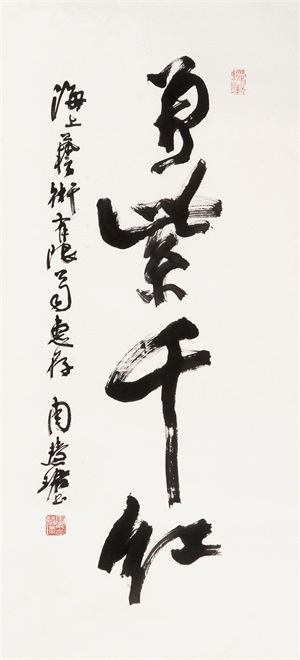 万紫千红
海上藝術有限公司惠存 周慧珺